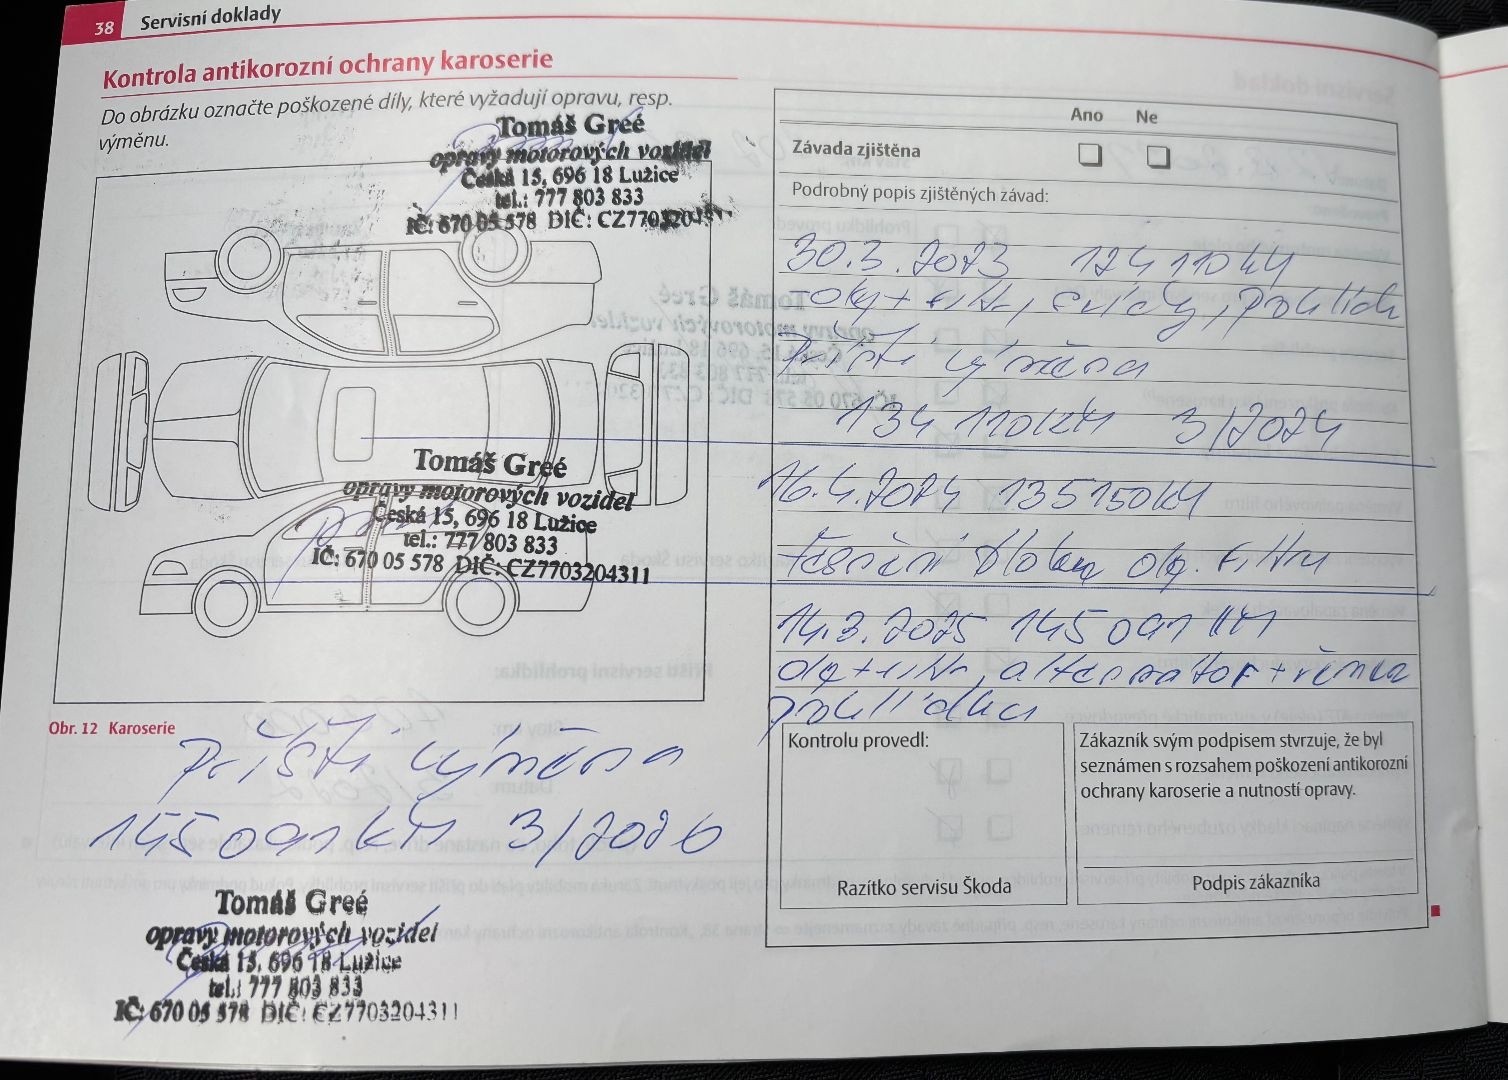 38 Servisní doklady
Kontrola antikorozní ochrany karoserie
Do obrázku označte poškozené díly, které vyžadují opravu, resp.
výměnu.
Tomáš Greé
opravy motorových vozidel
Česká 15, 696 18 Lužice
tel.: 777 803 833
IČ: 670 05 578 DIČ: CZ77032043
Tomáš Greé
opravy motorových vozidel
Česká 15, 696 18 Lužice
tel.: 777 803 833
IČ: 670 05 578 DIČ: CZ7703204311
Obr. 12 Karoserie
Příští výměna
145091KM 3/2026
Tomáš Greé
opravy motorových vozidel
Česká 15, 696 18 Lužice
tel.: 777 803 833
IČ: 670 05 578 DIČ: CZ7703204311
Ano Ne
Závada zjištěna
Podrobný popis zjištěných závad:
30.3.2023 124110KM
olej + filtr, svíčky,
Příští výměna
134110KM 3/2024
16.4.2024 135150KM
těsnění bloku olej. filtru
14.3.2025 145091KM
olej + filtr, alternátor + řemen
prohlídka
Kontrolu provedl:
Razítko servisu Škoda
Zákazník svým podpisem stvrzuje, že byl
seznámen s rozsahem poškození antikorozní
ochrany karoserie a nutností opravy.
Podpis zákazníka